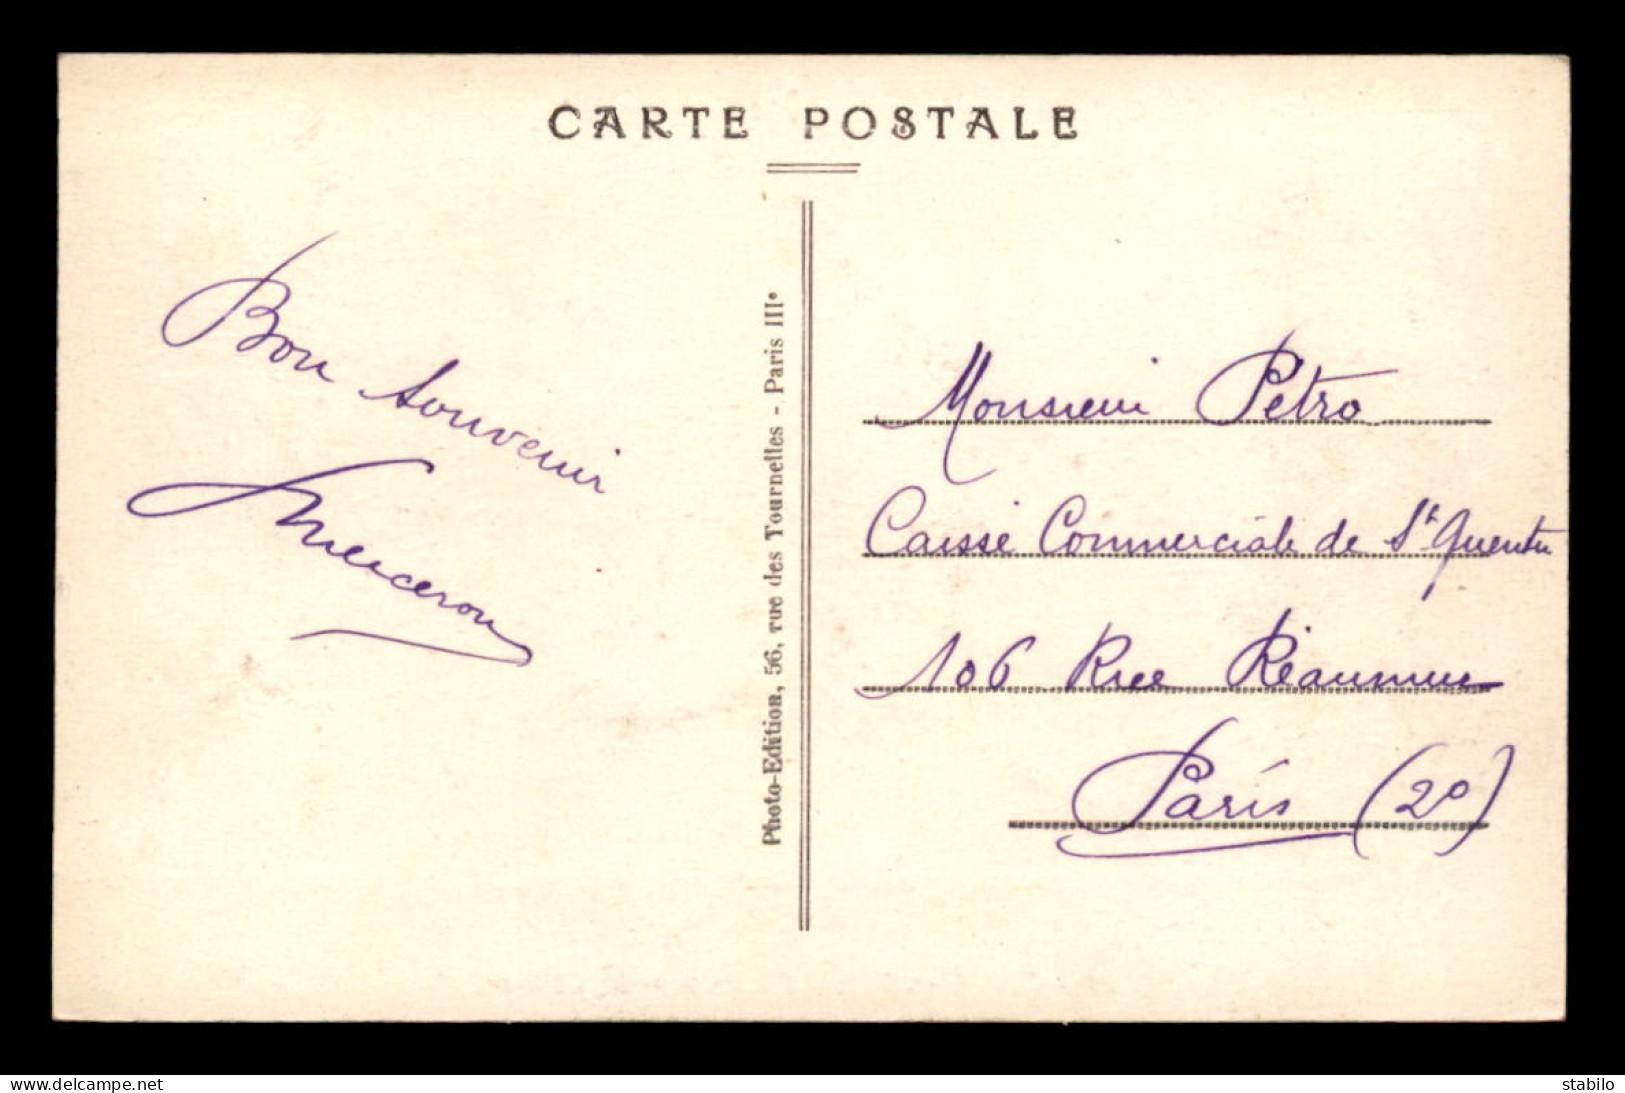 CARTE POSTALE
Bon souvenir
Photo-Edition, 56, rue des Tournelles - Paris IIIe
Monsieur Petro
Caisse Commerciale de St Quentin
106 Rue Réaumur
Paris (2e)
www.delcampe.net
stabilo